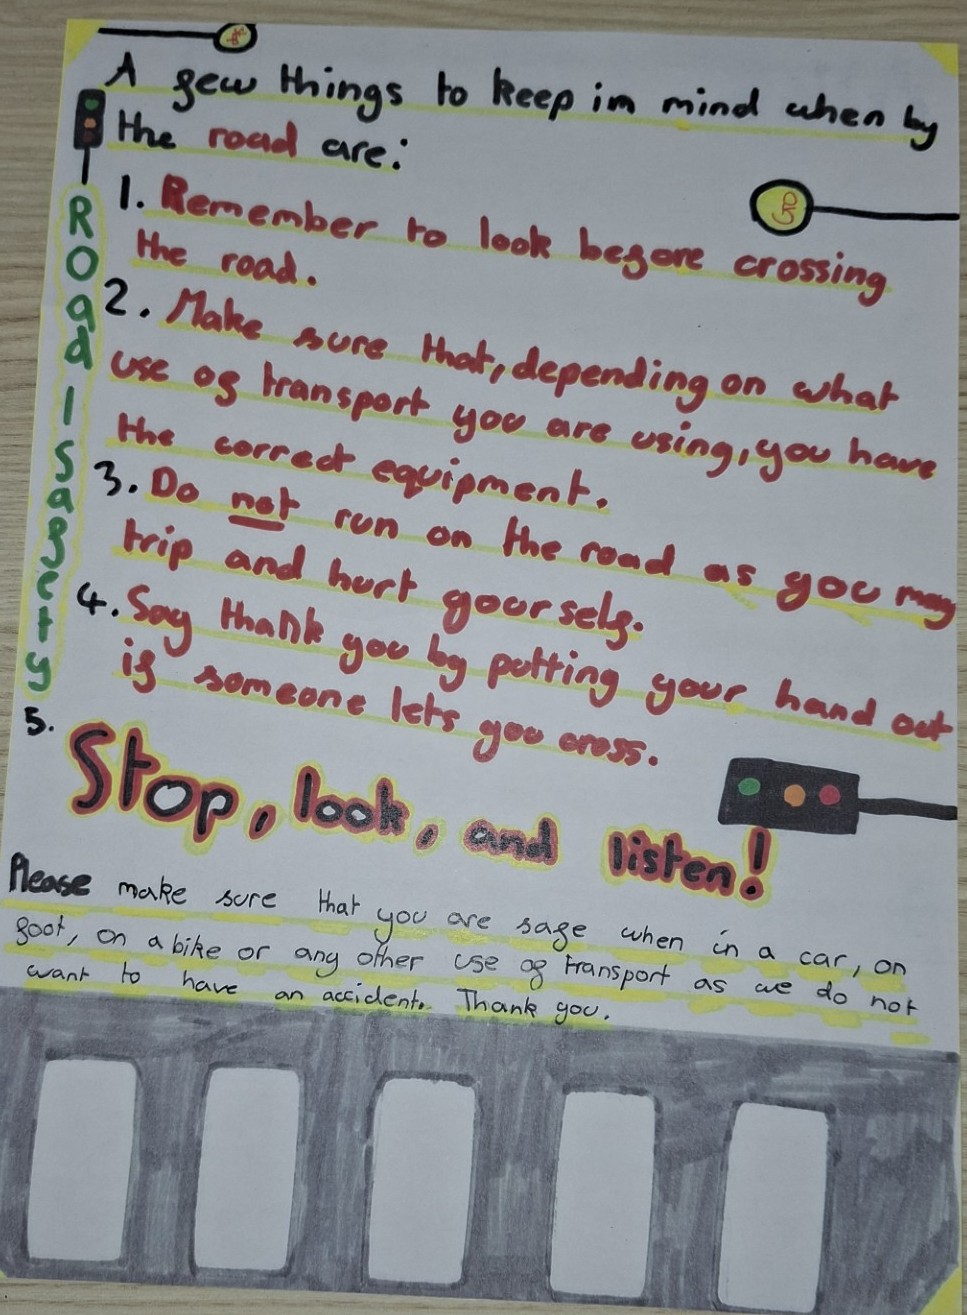 A few things to keep in mind when by
the road are:
Road Safety
1. Remember to look before crossing
the road.
2. Make sure that, depending on what
use of transport you are using, you have
the correct equipment.
3. Do not run on the road as you may
trip and hurt yourself.
4. Say thank you by putting your hand out
if someone lets you cross.
5.
Stop, look, and listen!
Please make sure that you are safe when in a car, on
foot, on a bike or any other use of transport as we do not
want to have an accident. Thank you.